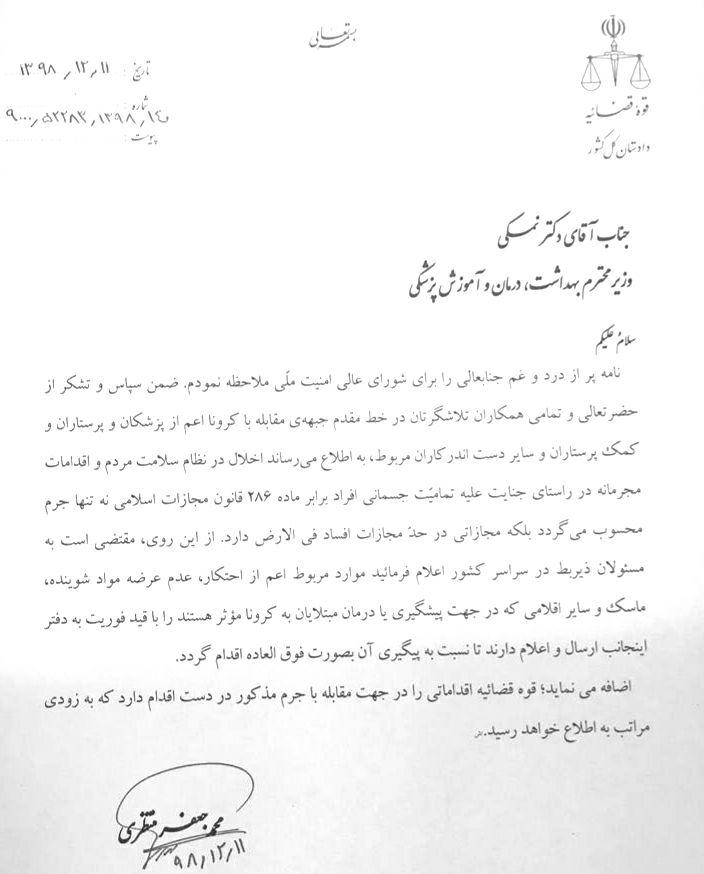 بسمه تعالی
قوهٔ قضائیه
دادستان کل کشور
تاریخ : ۱۳۹۸/۱۲/۱۱
شماره : ۹۰۰۰/۵۲۲۸۳/۱۳۹۸/۱۴۰
پیوست :
جناب آقای دکتر نمکی
وزیر محترم بهداشت، درمان و آموزش پزشکی
سلامٌ علیکم
نامه پر از درد و غم جنابعالی را برای شورای عالی امنیت ملّی ملاحظه نمودم. ضمن سپاس و تشکر از
حضرتعالی و تمامی همکاران تلاشگرتان در خط مقدم جبهه‌ی مقابله با کرونا اعم از پزشکان و پرستاران و
کمک پرستاران و سایر دست اندرکاران مربوط، به اطلاع می‌رساند اخلال در نظام سلامت مردم و اقدامات
مجرمانه در راستای جنایت علیه تمامیّت جسمانی افراد برابر ماده ۲۸۶ قانون مجازات اسلامی نه تنها جرم
محسوب می‌گردد بلکه مجازاتی در حدّ مجازات افساد فی الارض دارد. از این روی، مقتضی است به
مسئولان ذیربط در سراسر کشور اعلام فرمائید موارد مربوط اعم از احتکار، عدم عرضه مواد شوینده،
ماسک و سایر اقلامی که در جهت پیشگیری یا درمان مبتلایان به کرونا مؤثر هستند را با قید فوریت به دفتر
اینجانب ارسال و اعلام دارند تا نسبت به پیگیری آن بصورت فوق العاده اقدام گردد.
اضافه می نماید؛ قوه قضائیه اقداماتی را در جهت مقابله با جرم مذکور در دست اقدام دارد که به زودی
مراتب به اطلاع خواهد رسید.
محمد جعفر منتظری
۹۸/۱۲/۱۱